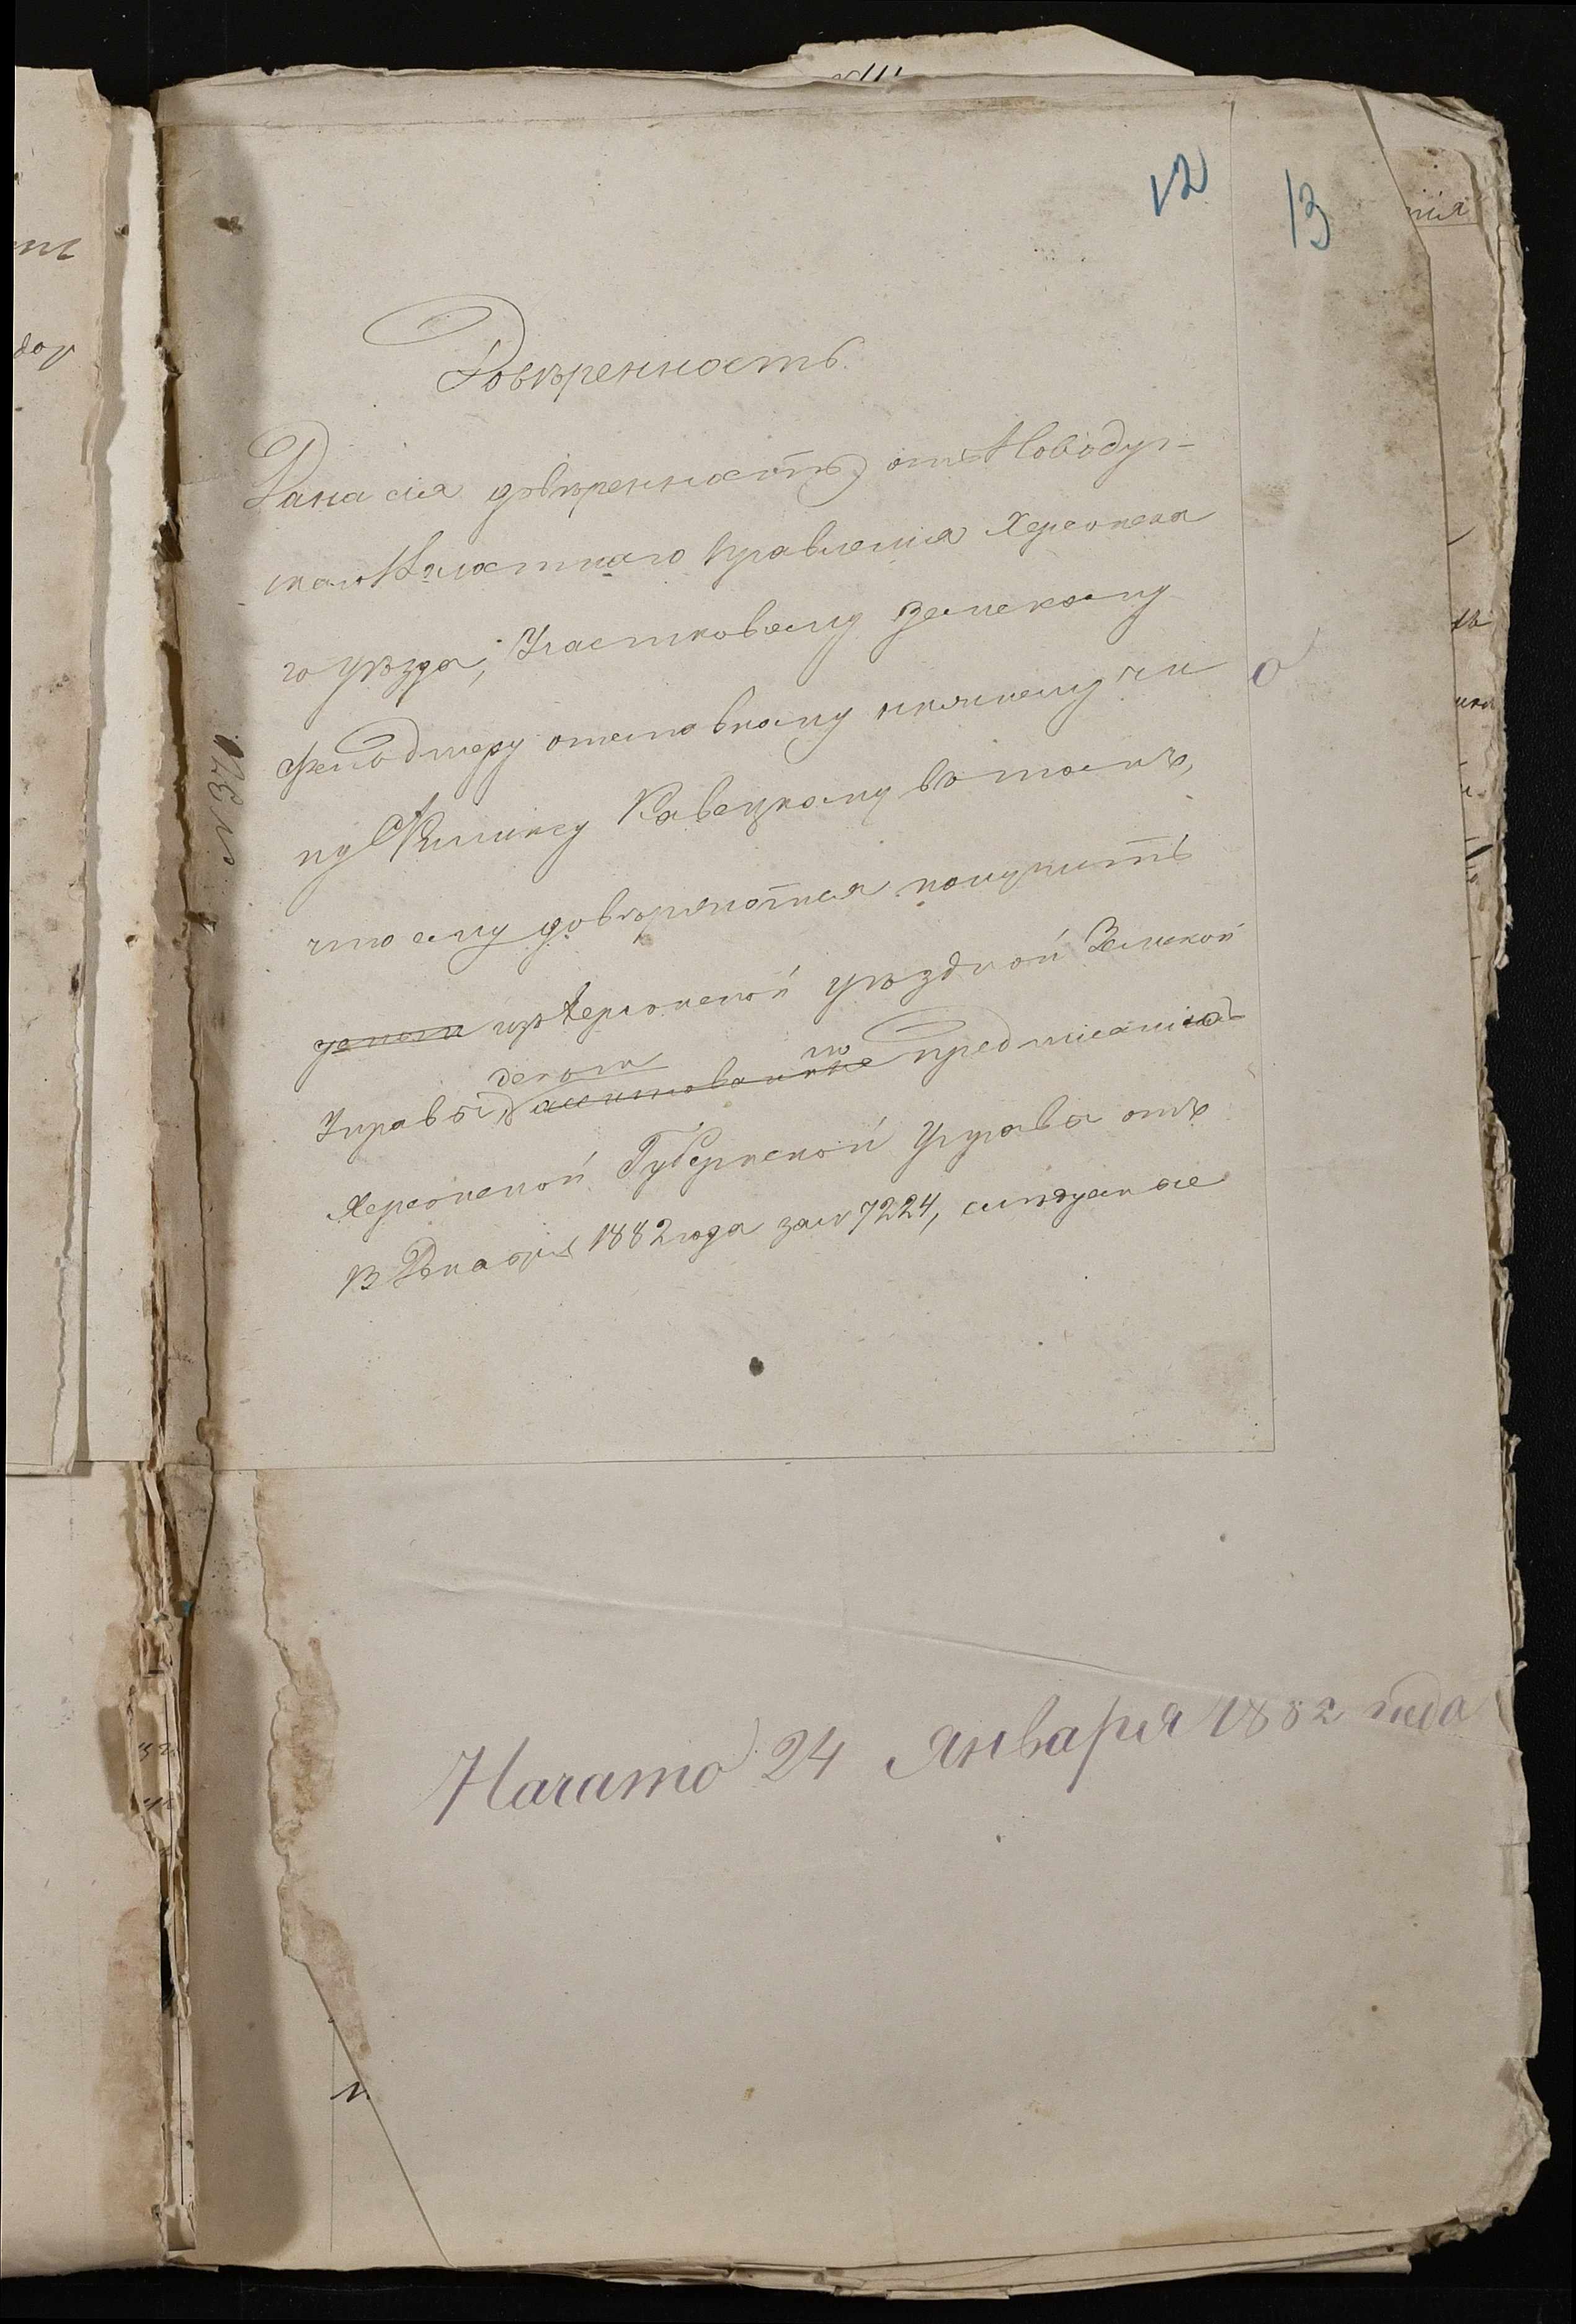 12
13
Довѣренность.
Дана сія довѣренность отъ Новодуг-
скаго Волостнаго Правленія Херсонска
го уѣзда, Участковому Земскому
Фельдшеру отставному
Кавецкому въ томъ,
что ему довѣряется получить
деньги изъ Херсонской уѣздной Земской
деньги по
Управы, ассигнованные предписанію
Херсонской Губернской Управы отъ
13 Декабря 1882 года за № 7224, слѣдуемые
№ 370
Начато 24 Января 1882 года